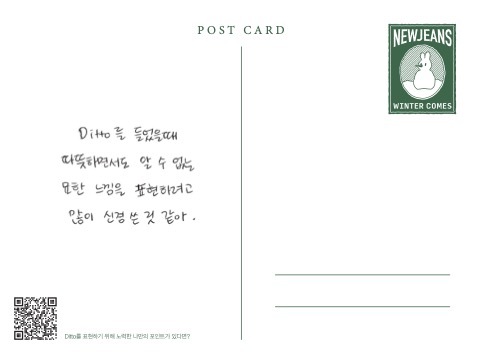 POST CARD
NEWJEANS
WINTER COMES
Ditto를 들었을때
따뜻하면서도 알 수 없는
묘한 느낌을 표현하려고
많이 신경 쓴 것 같아.
Ditto를 표현하기 위해 노력한 나만의 포인트가 있다면?